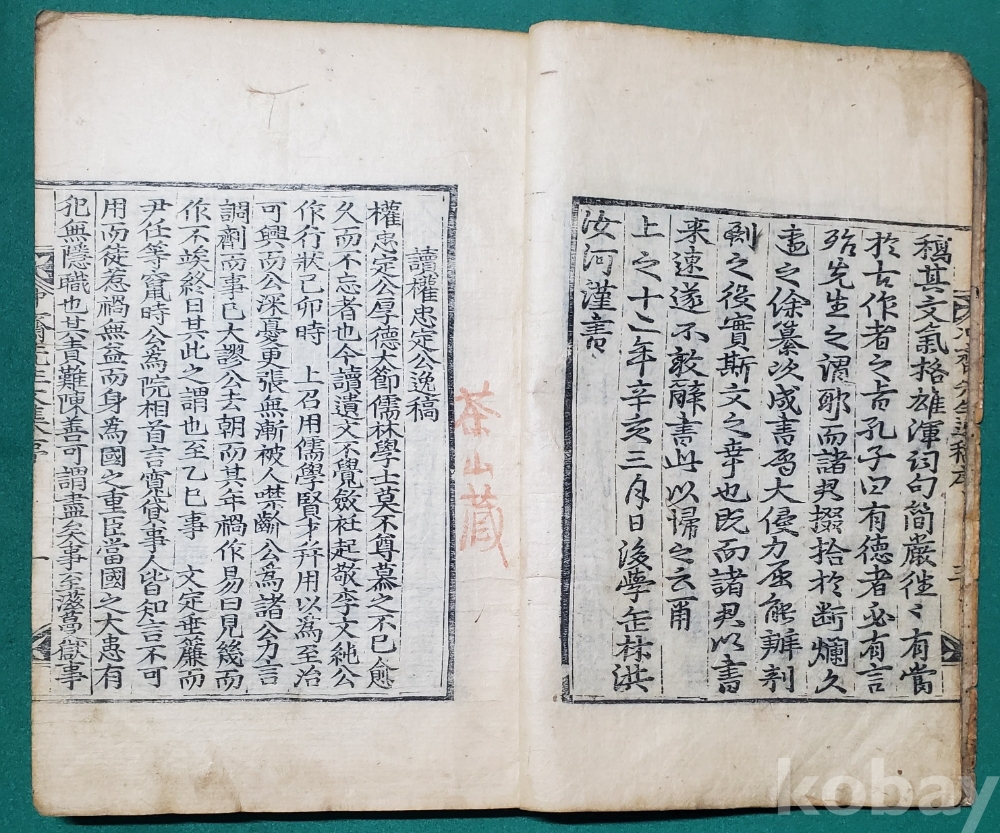 稿其文氣格雄渾詞句簡嚴往々有當
於古作者之旨孔子曰有德者必有言
殆先生之謂耶而諸君掇拾於斷爛久
遠之餘纂次成書屬大侵力屈能辦剞
劂之役實斯文之幸也旣而諸君以書
來速遂不敢辭書此以歸之云爾
上之十二年辛亥三月日後學缶林洪
汝河謹書
讀權忠定公逸稿
權忠定公厚德大節儒林學士莫不尊慕之不已愈
久而不忘者也今讀遺文不覺斂衽起敬李文純公
作行狀己卯時 上召用儒學賢才幷用以爲至治
可興而公深憂更張無漸被人噤齘公爲諸公力言
調劑而事已大謬公去朝而其年禍作易曰見幾而
作不俟終日其此之謂也至乙巳事 文定垂簾而
尹任等竄時公爲院相首言寃貸事人皆知言不可
用而徒惹禍無益而身爲國之重臣當國之大患有
犯無隱職也其責難陳善可謂盡矣事至滋蔓獄事
茶山藏
kobay